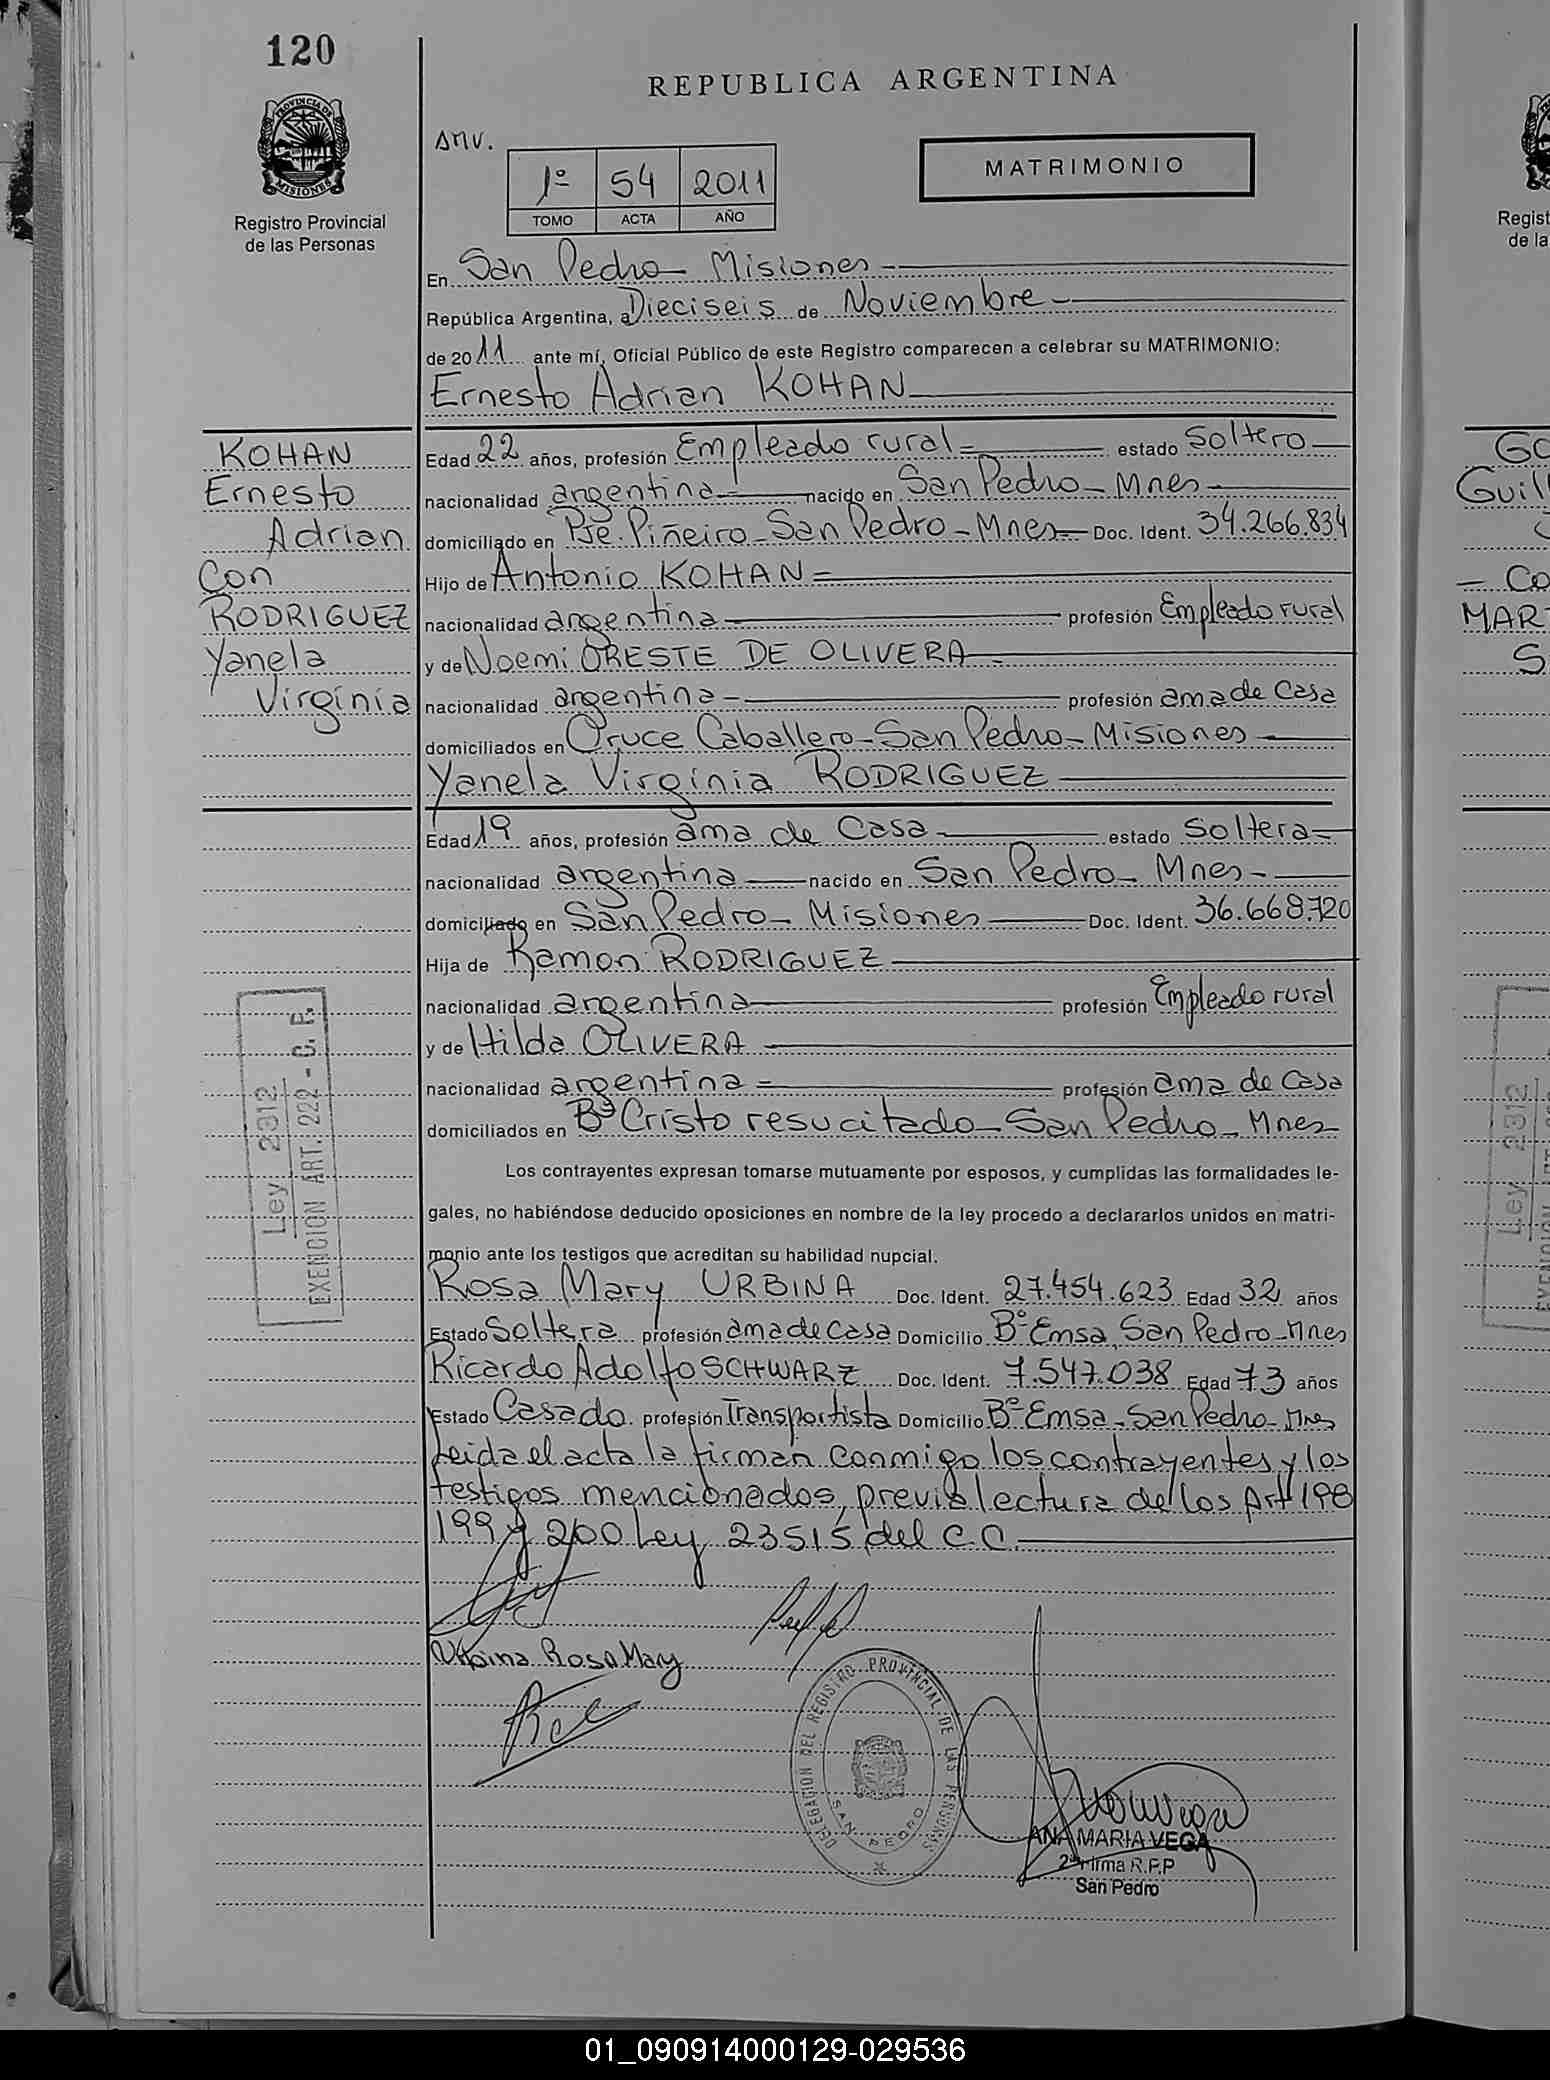 120
REPUBLICA ARGENTINA
PROVINCIA DE
MISIONES
Registro Provincial
de las Personas
AMV.
1º 54 2011
TOMO ACTA AÑO
MATRIMONIO
En San Pedro - Misiones
República Argentina, a Dieciseis de Noviembre
de 2011 ante mí, Oficial Público de este Registro comparecen a celebrar su MATRIMONIO:
Ernesto Adrian KOHAN
KOHAN
Ernesto
Adrian
Con
RODRIGUEZ
Yanela
Virginia
Edad 22 años, profesión Empleado rural estado Soltero
nacionalidad argentina nacido en San Pedro - Mnes
domiciliado en Pje. Piñeiro - San Pedro - Mnes Doc. Ident. 34.266.834
Hijo de Antonio KOHAN
nacionalidad argentina profesión Empleado rural
y de Noemi ORESTE DE OLIVERA
nacionalidad argentina profesión ama de Casa
domiciliados en Cruce Caballero - San Pedro - Misiones
Yanela Virginia RODRIGUEZ
Edad 19 años, profesión ama de Casa estado Soltera
nacionalidad argentina nacido en San Pedro - Mnes
domiciliado en San Pedro - Misiones Doc. Ident. 36.668.720
Hija de Ramon RODRIGUEZ
nacionalidad argentina profesión Empleado rural
y de Hilda OLIVERA
nacionalidad argentina profesión ama de Casa
domiciliados en Bº Cristo resucitado - San Pedro - Mnes
Ley 2312
EXENCION ART. 222 - C. F.
Los contrayentes expresan tomarse mutuamente por esposos, y cumplidas las formalidades le-
gales, no habiéndose deducido oposiciones en nombre de la ley procedo a declararlos unidos en matri-
monio ante los testigos que acreditan su habilidad nupcial.
Rosa Mary URBINA Doc. Ident. 27.454.623 Edad 32 años
Estado Soltera profesión ama de casa Domicilio Bº Emsa, San Pedro - Mnes
Ricardo Adolfo SCHWARZ Doc. Ident. 7.547.038 Edad 73 años
Estado Casado profesión Transportista Domicilio Bº Emsa - San Pedro - Mnes
Leida el acta la firman conmigo los contrayentes y los
testigos mencionados, previa lectura de los Art 198
199 y 200 Ley 23515 del C.C.
Urbina Rosa Mary
DELEGACION DEL REGISTRO PROVINCIAL DE LAS PERSONAS
SAN PEDRO
ANA MARIA VEGA
2ª Firma R.P.P
San Pedro
Regist
de la
GO
Guill
- Co
MART
S
Ley 2312
01_090914000129-029536